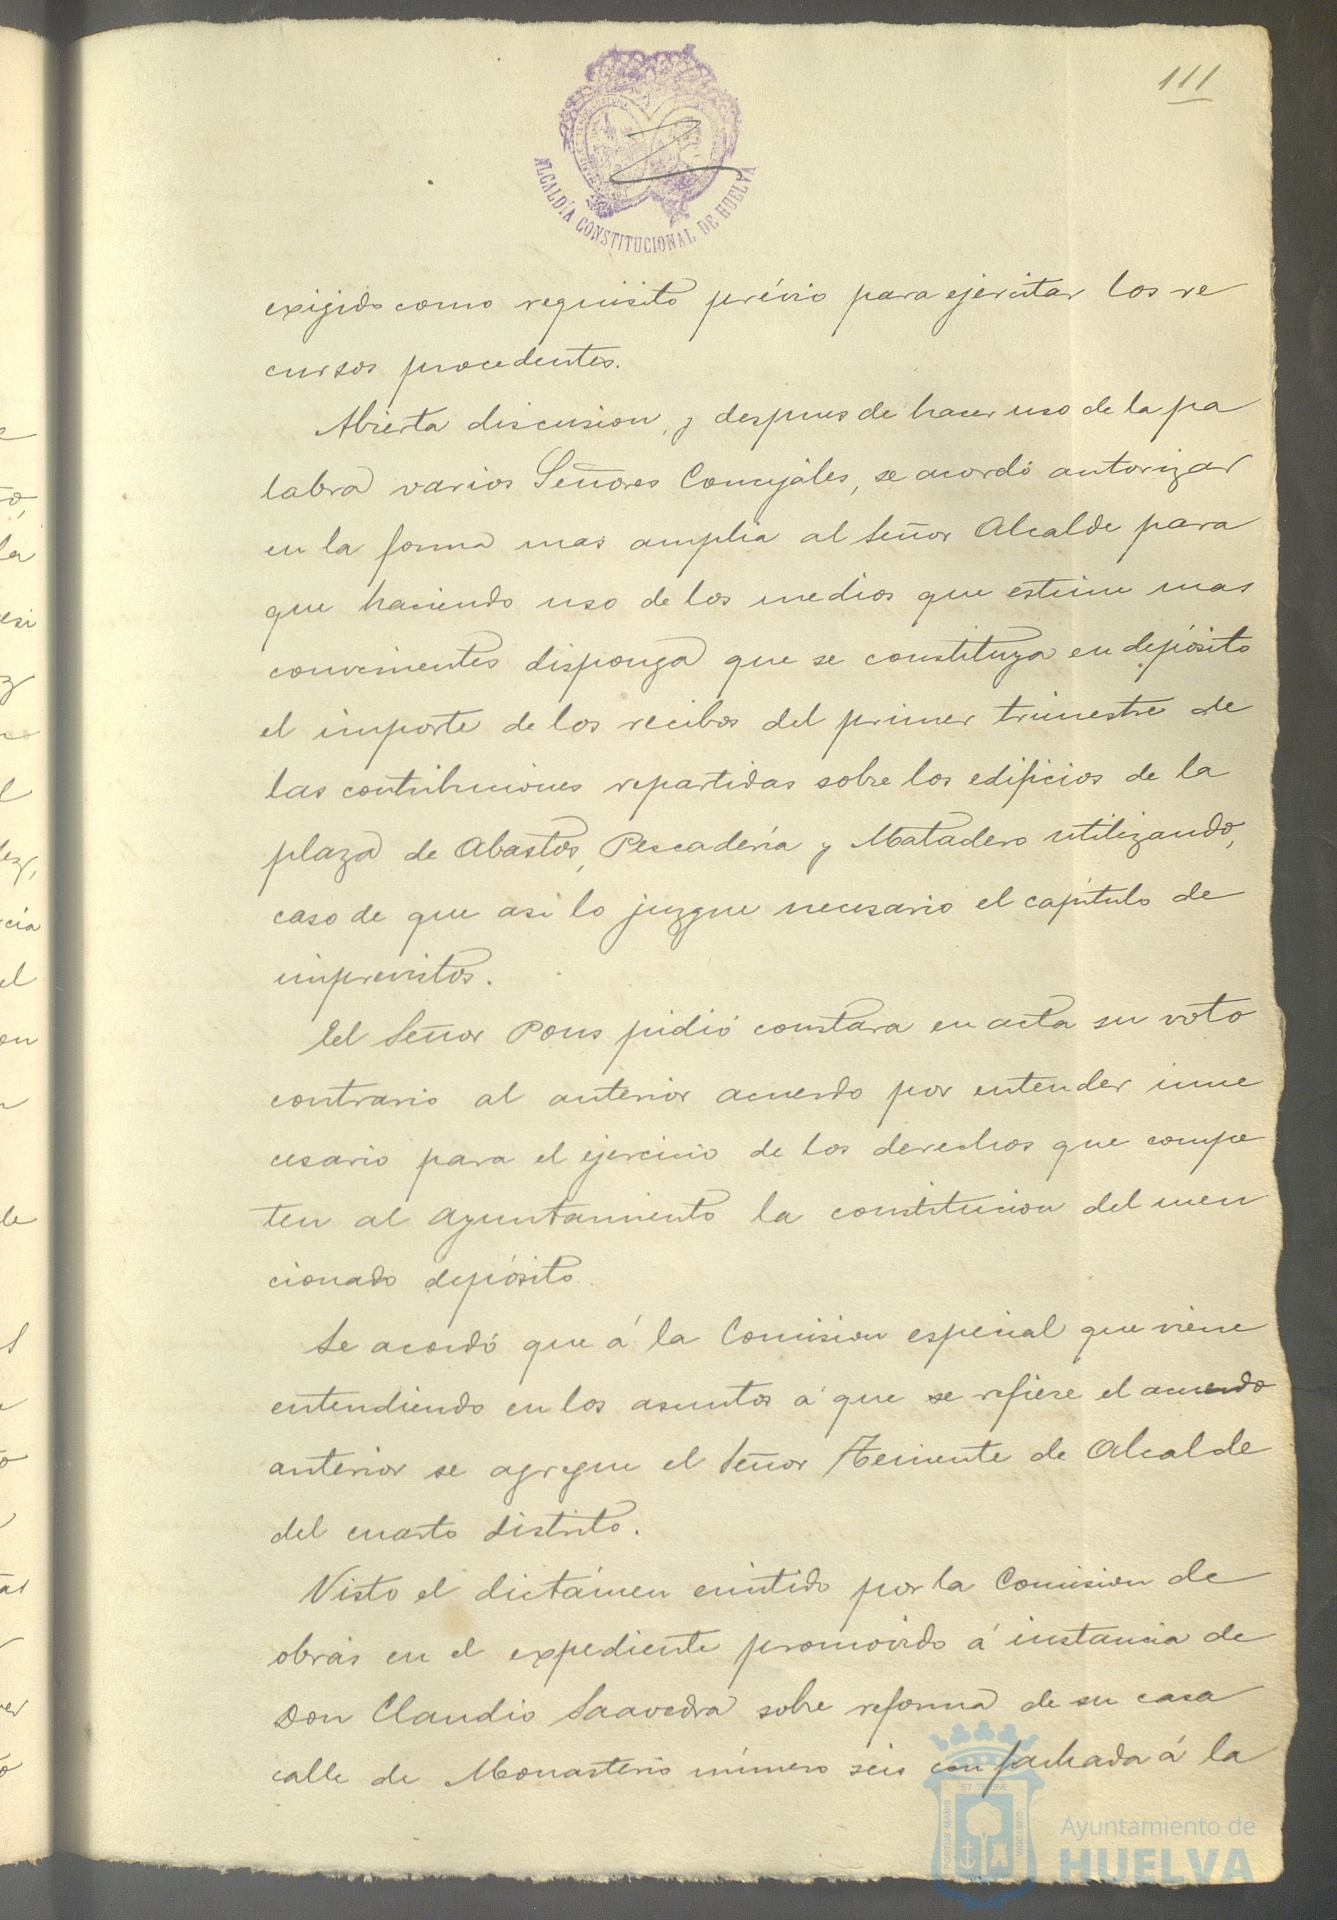 111
ALCALDÍA CONSTITUCIONAL DE HUELVA
exigido como requisito prévio para ejercitar los re
cursos procedentes.
Abierta discusion, y despues de hacer uso de la pa
labra varios Señores Concejáles, se acordó autorizar
en la forma mas amplia al Señor Alcalde para
que haciendo uso de los medios que estime mas
convenientes disponga que se constituya en depósito
el importe de los recibos del primer trimestre de
las contribuciones repartidas sobre los edificios de la
plaza de Abastos, Pescadería y Matadero utilizando,
caso de que asi lo juzgue necesario el capítulo de
imprevistos.
El Señor Pons pidió constara en acta su voto
contrario al anterior acuerdo por entender inne
cesario para el ejercicio de los derechos que compe
ten al Ayuntamiento la constitucion del men
cionado depósito.
Se acordó que á la Comision especial que viene
entendiendo en los asuntos á que se refiere el acuerdo
anterior se agregue el Señor Teniente de Alcalde
del cuarto distrito.
Visto el dictámen emitido por la Comision de
obras en el expediente promovido á instancia de
Don Claudio Saavedra sobre reforma de su casa
calle de Monasterio número seis con fachada á la
PORTUS MARIS ET TERRAE CUSTODIA
Ayuntamiento de
HUELVA